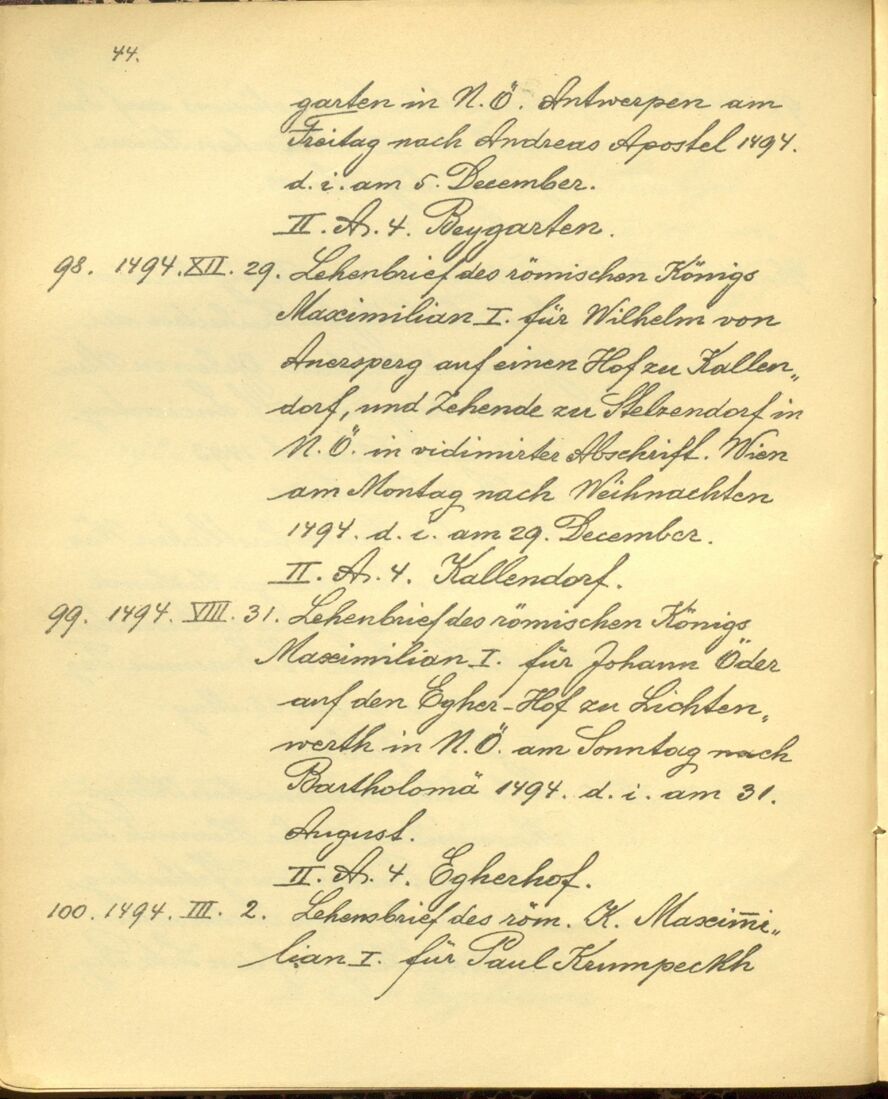 44.
garten in N.Ö. Antwerpen am
Freitag nach Andreas Apostel 1494.
d. i. am 5. December.
II. A. 4. Beygarten.
98. 1494. XII. 29. Lehenbrief des römischen Königs
Maximilian I. für Wilhelm von
Auersperg auf einen Hof zu Kallen„
dorf, und Zehende zu Stelzendorf in
N.Ö. in vidimirter Abschrift. Wien
am Montag nach Weihnachten
1494. d. i. am 29. December.
II. A. 4. Kallendorf.
99. 1494. VIII. 31. Lehenbrief des römischen Königs
Maximilian I. für Johann Öder
auf den Egher-Hof zu Lichten„
werth in N.Ö. am Sonntag nach
Bartholomä 1494. d. i. am 31.
August.
II. A. 4. Egherhof.
100. 1494. III. 2. Lehensbrief des röm. K. Maximi„
lian I. für Paul Krumpeckh